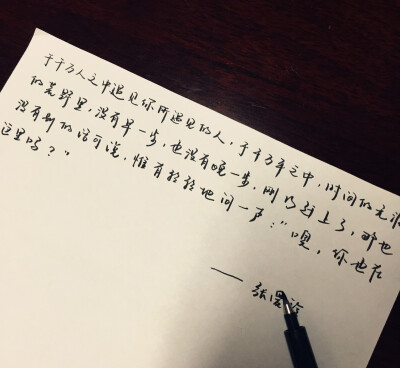 于千万人之中遇见你所遇见的人，于千万年之中，时间的无涯
的荒野里，没有早一步，也没有晚一步，刚巧赶上了，那也
没有别的话可说，惟有轻轻地问一声："噢，你也在
这里吗？"
——张爱玲